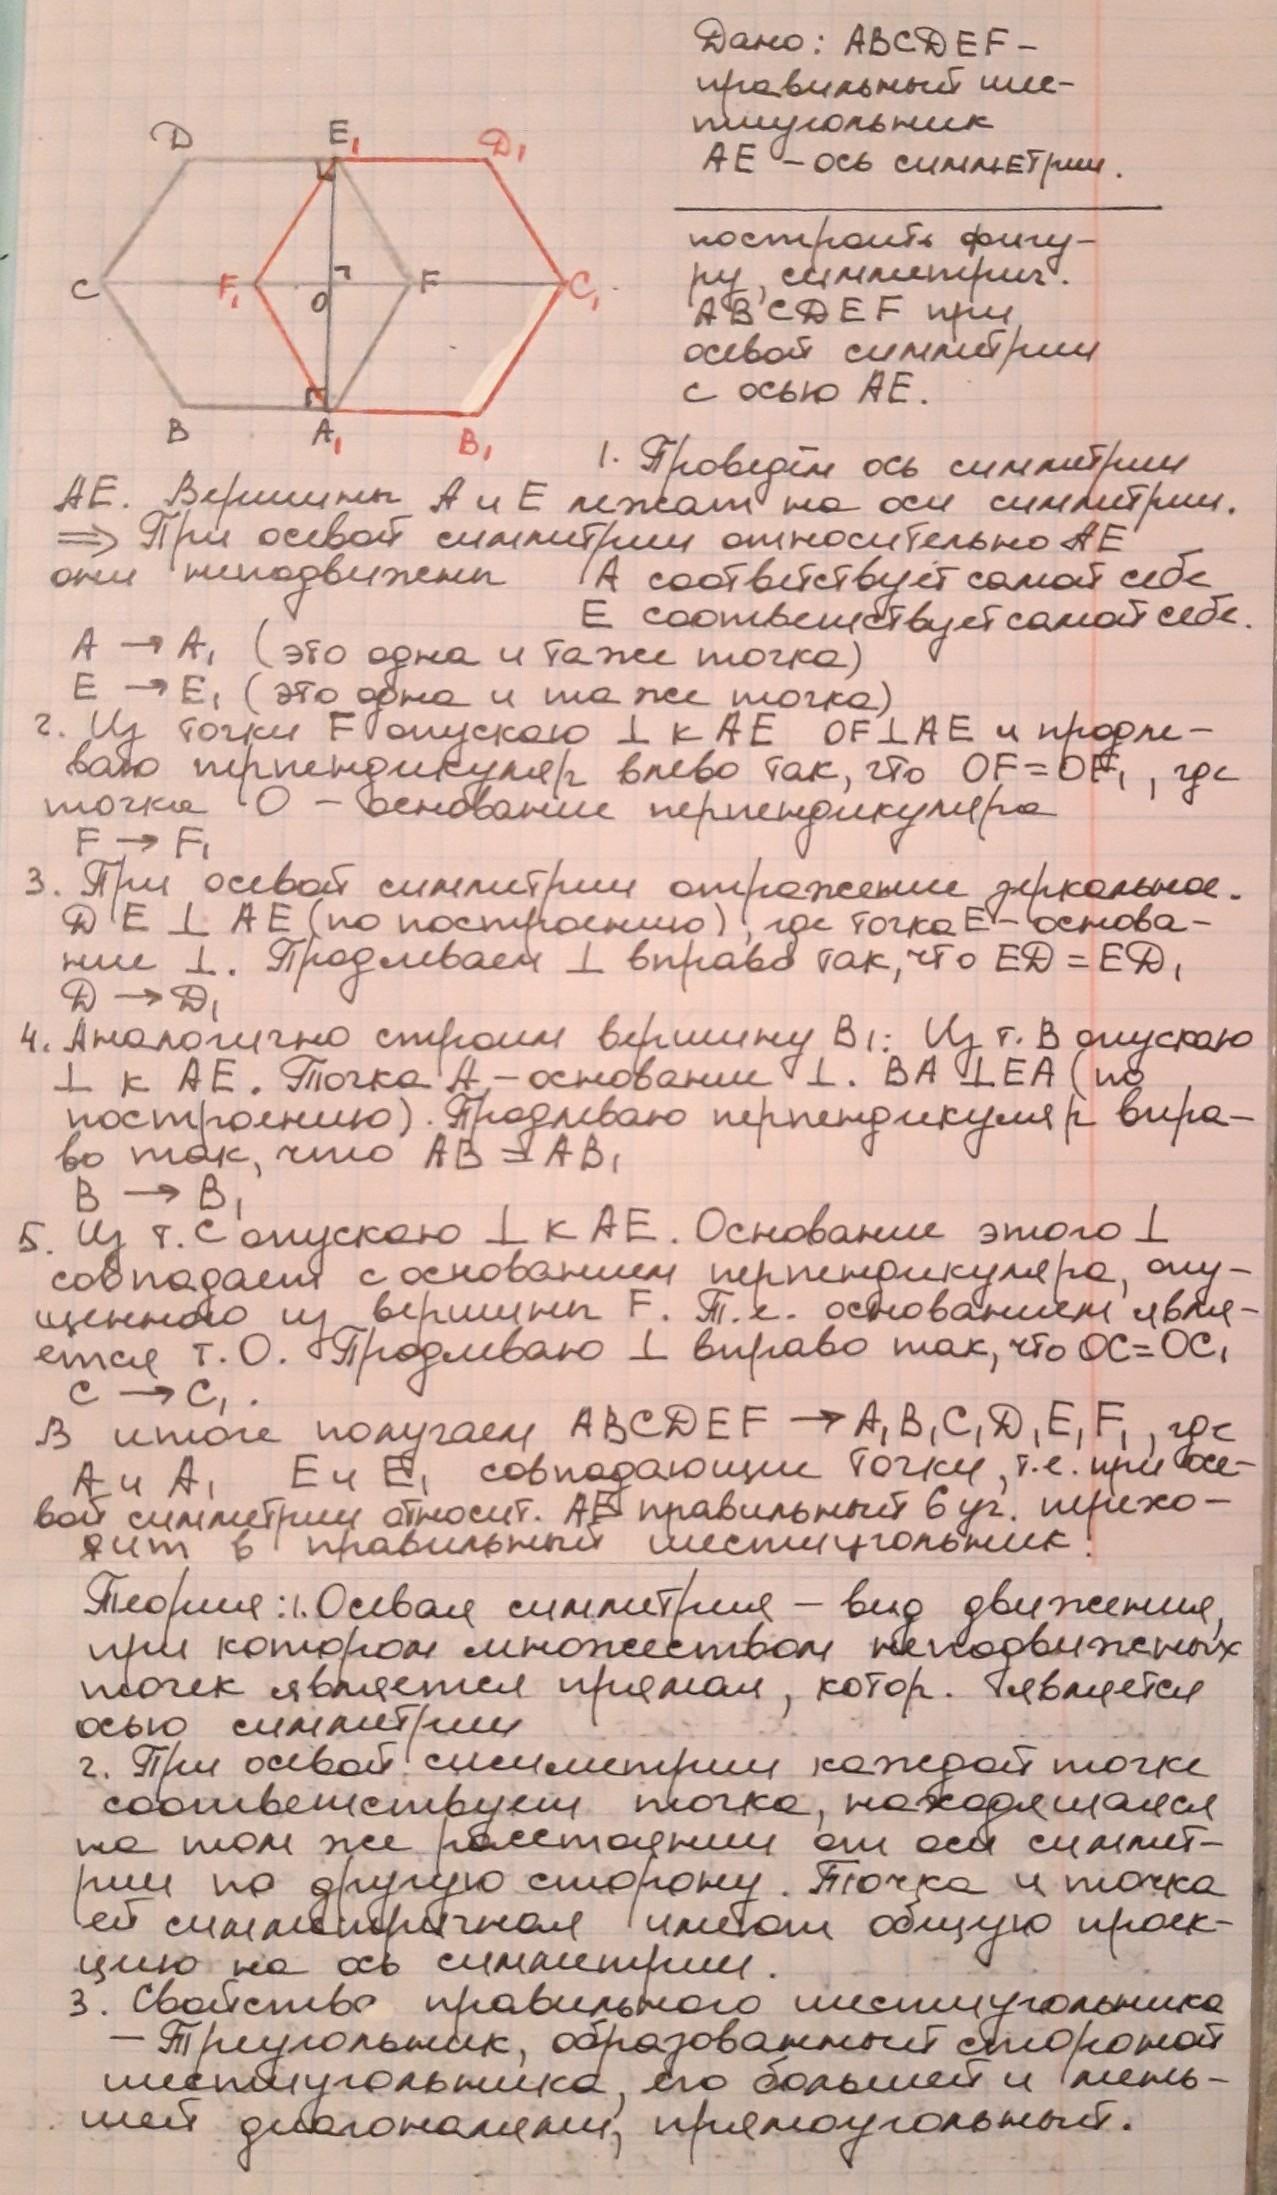 Дано: ABCDEF –
правильный шес-
тиугольник
AE – ось симметрии.
построить фигу-
ру, симметрич.
ABCDEF при
осевой симметрии
с осью AE.
D E₁ D₁
C F₁ O F C₁
B A₁ B₁
1. Проведём ось симметрии
AE. Вершины A и E лежат на оси симметрии.
⇒ При осевой симметрии относительно AE
они неподвижны A соответствует самой себе
E соответствует самой себе.
A → A₁ (это одна и таже точка)
E → E₁ (это одна и та же точка)
2. Из точки F опускаю ⊥ к AE OF⊥AE и продле-
ваю перпендикуляр влево так, что OF=OF₁, где
точка O – основание перпендикуляра
F → F₁
3. При осевой симметрии отражение зеркальное.
DE ⊥ AE (по построению), где точка E – основа-
ние ⊥. Продлеваем ⊥ вправо так, что ED = ED₁
D → D₁
4. Аналогично строим вершину B₁: Из т. B опускаю
⊥ к AE. Точка A – основание ⊥. BA ⊥EA (по
построению). Продлеваю перпендикуляр впра-
во так, что AB = AB₁
B → B₁
5. Из т. C опускаю ⊥ к AE. Основание этого ⊥
совпадает с основанием перпендикуляра, опу-
щенного из вершины F. Т.е. основанием явля-
ется т. O. Продлеваю ⊥ вправо так, что OC=OC₁
C → C₁.
В итоге получаем ABCDEF → A₁B₁C₁D₁E₁F₁, где
A и A₁ E и E₁ совпадающие точки, т.е. при осе-
вой симметрии относит. AE правильный 6 уг. перехо-
дит в правильный шестиугольник.
Теория: 1. Осевая симметрия – вид движения,
при котором множеством неподвижных
точек является прямая, котор. является
осью симметрии
2. При осевой симметрии каждой точке
соответствует точка, находящаяся
на том же расстоянии от оси симмет-
рии по другую сторону. Точка и точка
ей симметричная имеют общую проек-
цию на ось симметрии.
3. Свойство правильного шестиугольника
– Треугольник, образованный стороной
шестиугольника, его большей и мень-
шей диагоналями, прямоугольный.